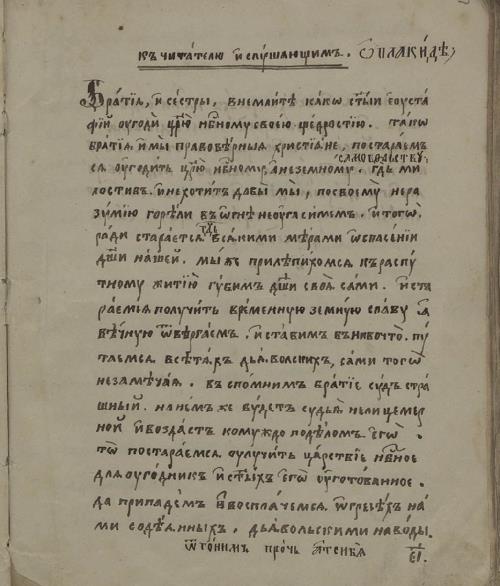 къ читателю и слышающимъ. Ѿ плакиды
Братїя, и сестры, внемайтѣ како ст҃ый еѵста
фїй оугоди цр҃ю нбⷭ҇ному своею щедростїю. Тако
братїя и мы правовѣрныя христїяне, постараемъ
ся оугодить цр҃ю нбⷭ҇ному, а не земному.
самовольству,
гдь ми
лостивъ. и нехотитъ дабы мы, по своему нера
зꙋмїю горѣли въ ѻгнѣ неоугасимемъ. и тогѡ
ради старается гдь всякими мѣрами ѡ спасенїи
дш҃и нашей. мы жъ прилѣпихомся къ распꙋ
тному житїю гꙋбимъ дш҃и своя сами. и ста
раемся получить временную земную славу а
вѣчную ѿвергаемъ. и ставимъ въ нивочто. пꙋ
таемся в сѣтяхъ дьявольскихъ, сами тогѡ
незамѣчая. воспомнимъ братїе сꙋдъ стра
шный. на немъ же бꙋдетъ сꙋдья нелицемер
ной и воздастъ комꙋждо по дѣломъ егѡ.
то постараемся оулучить царствїе нбⷭ҇ное
для оугодникъ и ст҃ыхъ егѡ оуготованное.
да припадемъ и восплачемся. ѡ грѣсѣхъ на
ми содѣянныхъ, дьявольскими наводы.
ѿгонимъ прочь ѿ себя